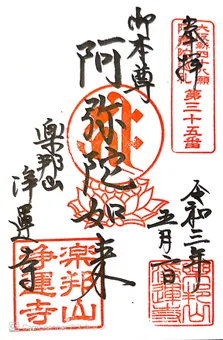 奉拝
第三十五番
御本尊
阿弥陀如来
楽邦山
浄運寺
令和三年
五月二日
楽邦山
浄運寺